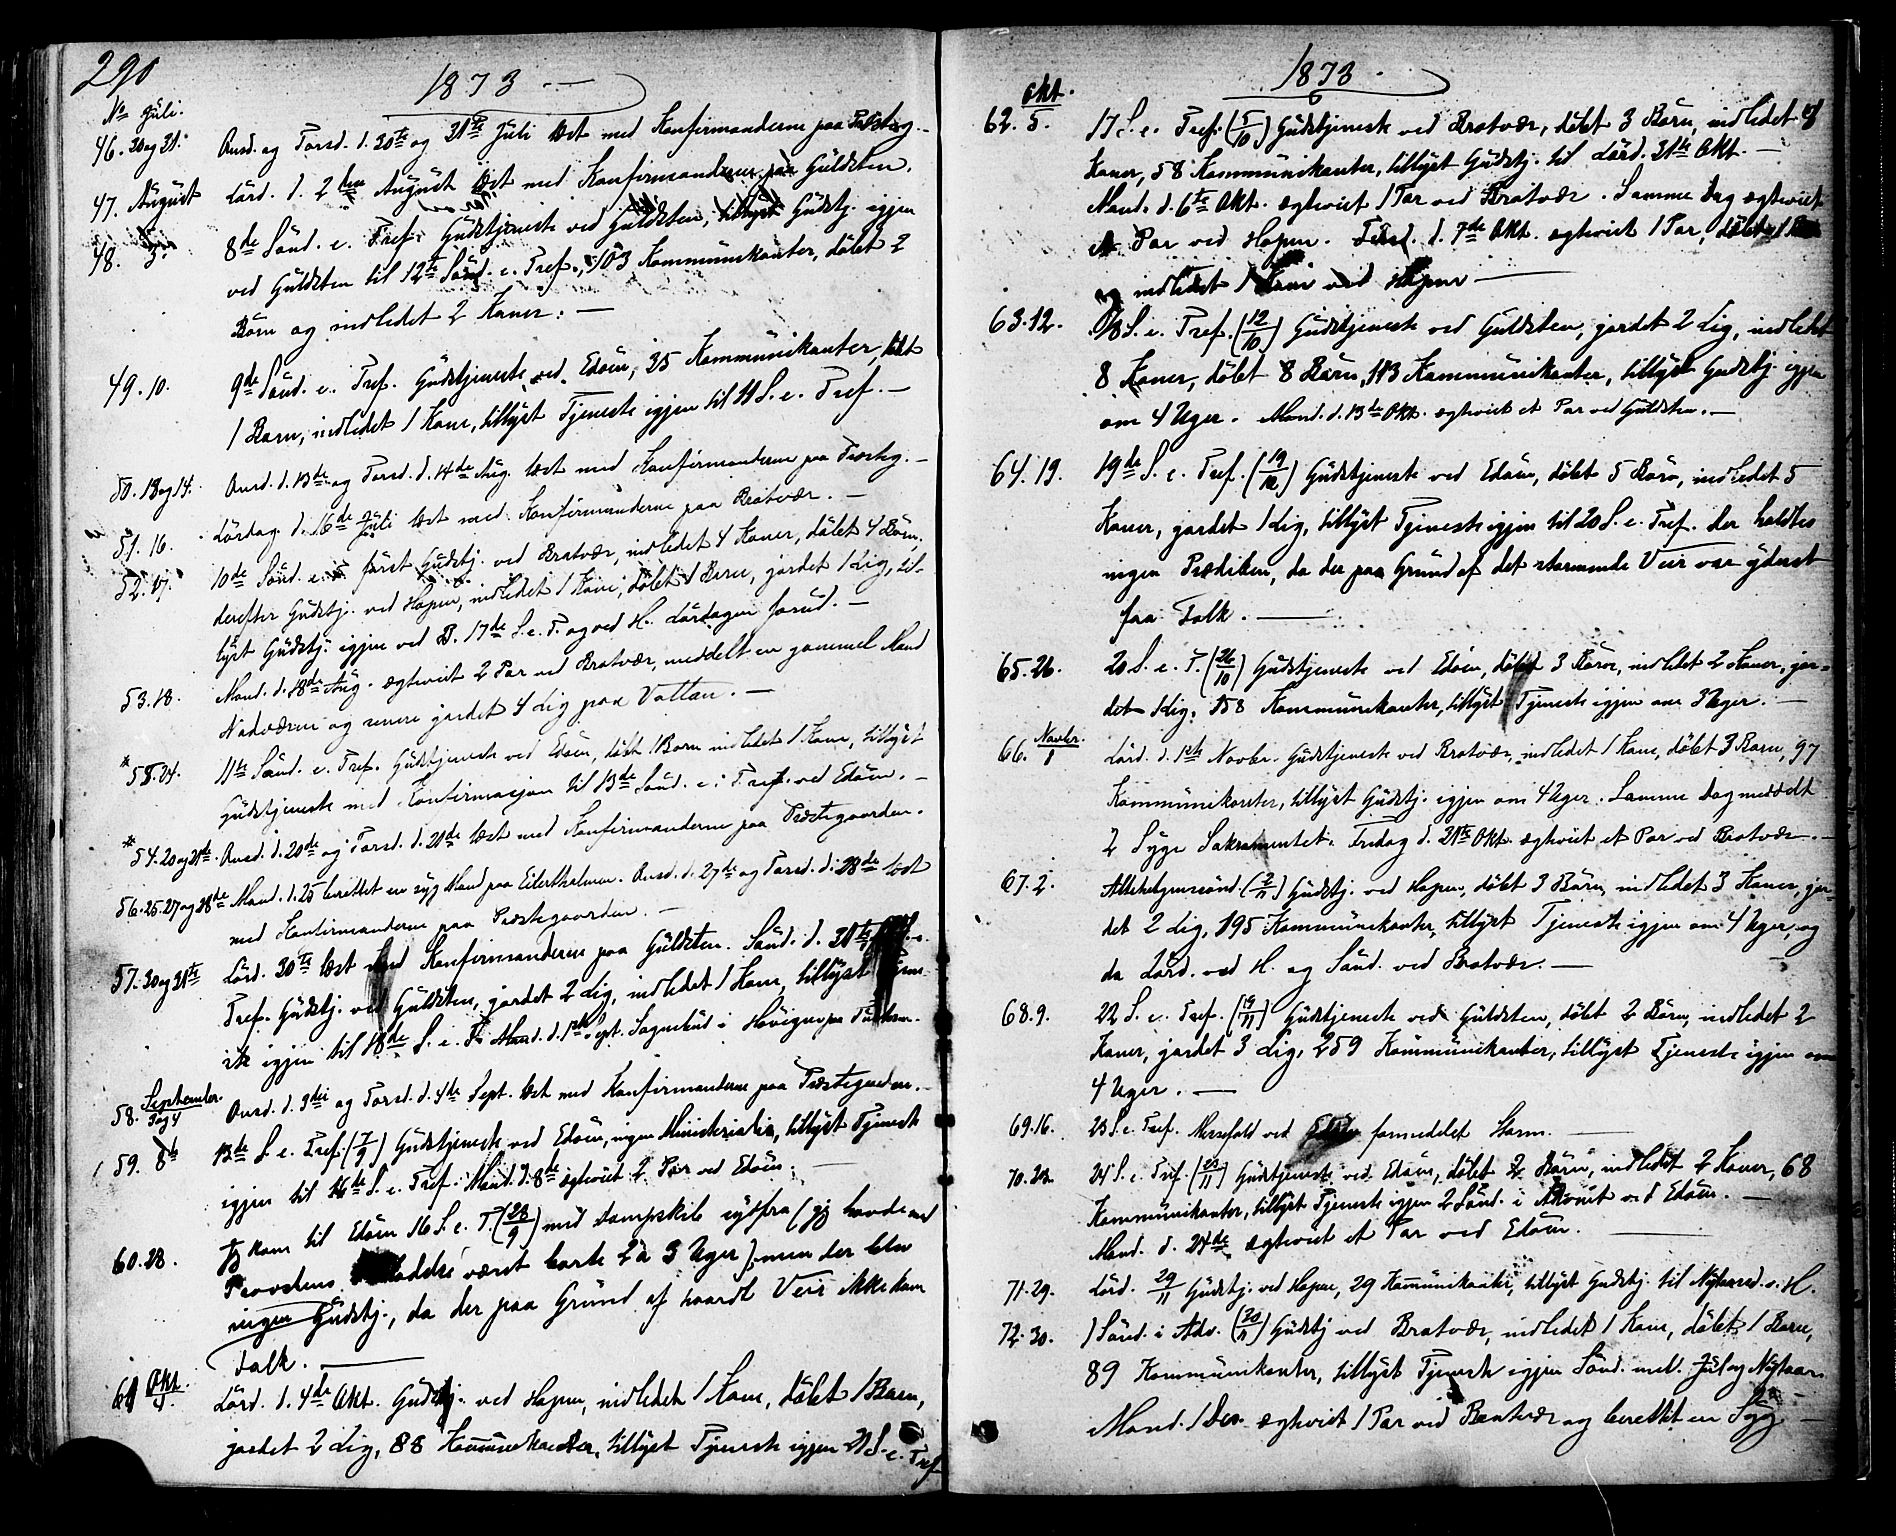 290
1873
No Juli.
46. 30 og 31. Onsd. og Torsd. d. 30te og 31te Juli læst med Konfirmanderne paa Præsteg. —
47. August Lørd. d. 2den August læst med Konfirmanderne paa Guldsten.
48. 3. 8de Sønd. e. Tref. Gudstjeneste ved Guldsten, tillyst Gudstj. igjen
ved Guldsten til 12te Sønd. e. Tref., 103 Kommunikanter, døbt 2
Børn og indledet 2 Koner. —
49. 10. 9de Sønd. e. Tref. Gudstjeneste ved Edøen, 35 Kommunikanter, døbt
1 Barn, indledet 1 Kone, tillyst Tjeneste igjen til 11 S. e. Tref. —
50. 13 og 14. Onsd. d. 13de og Torsd. d. 14de Aug. læst med Konfirmanderne paa Præsteg. —
51. 16. Lørdag d. 16de Juli læst med Konfirmanderne paa Bratvær. —
52. 17. 10de Sønd. e. T. først Gudstj. ved Bratvær, indledet 4 Koner, døbt 4 Børn,
derefter Gudstj. ved Hopen, indledet 1 Kone, døbt 1 Barn, jordet 1 Lig, til-
lyst Gudstj. igjen ved B. 17de S. e. T. og ved H. Lørdagen forud. —
53. 18. Mand. d. 18de Aug. ægteviet 2 Par ved Bratvær, meddelt en gammel Mand
Nadveren og senere jordet 4 Lig paa Vattan. —
* 58. 24. 11te Sønd. e. Tref. Gudstjeneste ved Edøen, døbt 1 Barn indledet 1 Kone, tillyst
Gudstjeneste med Konfirmasjon til 13de Sønd. e. Tref. ved Edøen. —
* 54. 20 og 21de. Onsd. d. 20de og Torsd. d. 21de læst med Konfirmanderne paa Præstegaarden.
56. 25. 27 og 28de Mand. d. 25 berettet en syg Mand paa Eilertholmen. Onsd. d. 27de og Torsd. d. 28de læst
med Konfirmanderne paa Præstegaarden. —
57. 30 og 31te Lørd. 30te læst med Konfirmanderne paa Guldsten. Sønd. d. 31te
Tref. Gudstj. ved Guldsten, jordet 2 Lig, indledet 1 Kone, tillyst
igjen til 18de S. e. T. Mand. d. 1ste Sept. Sognebud i
58. September 3 og 4 Onsd. d. 3die og Torsd. d. 4de Sept. læst med Konfirmanderne paa Præstegaarden. —
59. 8de 13de S. e. Tref. (7/9) Gudstjeneste ved Edøen, ingen Ministerialia, tillyst Tjeneste
igjen til 16de S. e. Tref. Mand. d. 8de ægteviet 2 Par ved Edøen. —
60. 28. Jeg kom til Edøen 16 S. e. T. (28/9) med Dampskib sydfra (jeg havde med
Provstens været borte 2 à 3 Uger), men der blev
ingen Gudstj., da der paa Grund af haardt Veir ikke kom
Folk. —
61 Okt. Lørd. d. 4de Okt. Gudstj. ved Hopen, indledet 1 Kone, døbt 1 Barn,
jordet 2 Lig, 88 Kommunikanter, tillyst Tjeneste igjen 21 S. e. Tref
1873.
Okt.
62. 5. 17 S. e. Tref. (5/10) Gudstjeneste ved Bratvær, døbt 3 Børn, indledet 4
Koner, 58 Kommunikanter, tillyst Gudstj. til Lørd. 31te Okt. —
Mand. d. 6te Okt. ægteviet 1 Par ved Bratvær. Samme Dag ægteviet
et Par ved Hopen. Tirsd. d. 7de Okt. ægteviet 1 Par, døbt 1
og indledet 1 Kone ved Hopen —
63. 12. 18 S. e. Tref. (12/10) Gudstjeneste ved Guldsten, jordet 2 Lig, indledet
8 Koner, døbt 8 Børn, 113 Kommunikanter, tillyst Gudstj. igjen
om 4 Uger. Mand. d. 13de Okt. ægteviet et Par ved Guldsten. —
64. 19. 19de S. e. Tref. (19/10) Gudstjeneste ved Edøen, døbt 5 Børn, indledet 5
Koner, jordet 1 Lig, tillyst Tjeneste igjen til 20 S. e. Tref. Der holdtes
ingen Prædiken, da der paa Grund af det stormende Veir var yderst
faa Folk. —
65. 26. 20 S. e. T. (26/10) Gudstjeneste ved Edøen, døbt 3 Børn, indledet 2 Koner, jor-
det 1 Lig, 158 Kommunikanter, tillyst Tjeneste igjen om 3 Uger. —
66. Novbr. 1 Lørd. d. 1ste Novbr. Gudstjeneste ved Bratvær, indledet 1 Kone, døbt 3 Børn, 97
Kommunikanter, tillyst Gudstj. igjen om 4 Uger. Samme Dag meddelt
2 Syge Sakramentet. Fredag d. 31te Okt. ægteviet et Par ved Bratvær. —
67. 2. Allehelgenssønd. (2/11) Gudstj. ved Hopen, døbt 3 Børn, indledet 3 Koner, jor-
det 2 Lig, 195 Kommunikanter, tillyst Tjeneste igjen om 4 Uger, og
da Lørd. ved H. og Sønd. ved Bratvær. —
68. 9. 22 S. e. Tref. (9/11) Gudstjeneste ved Guldsten, døbt 2 Børn, indledet 2
Koner, jordet 3 Lig, 259 Kommunikanter, tillyst Tjeneste igjen om
4 Uger. —
69. 16. 23 S. e. Tref. Messefald ved Edøen formedelst Storm. —
70. 23. 24 S. e. Tref. (23/11) Gudstjeneste ved Edøen, døbt 2 Børn, indledet 2 Koner, 68
Kommunikanter, tillyst Tjeneste igjen 2 Sønd. i Advent ved Edøen. —
Mand. d. 24de ægteviet et Par ved Edøen. —
71. 29. Lørd. 29/11 Gudstj. ved Hopen, 29 Kommunikanter, tillyst Gudstj. til Nytaarsd. v. H.
72. 30. 1 Sønd. i Adv. (30/11) Gudstj ved Bratvær, indledet 1 Kone, døbt 1 Barn,
89 Kommunikanter, tillyst Tjeneste igjen Sønd. mel. Jul og Nytaar.
Mand. 1 Des. ægteviet 1 Par ved Bratvær og berettet en Syg —